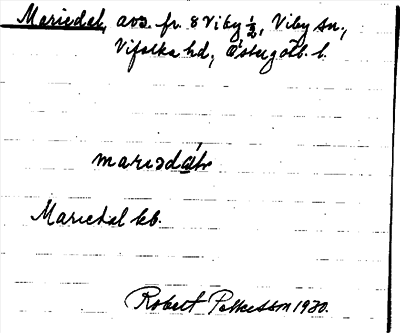 Mariedal, avs. fr. 8 Viby ½, Viby sn,
Vifolka hd, Östergötl. l.
Mariedal kb.
Robert Palkesson 1930.